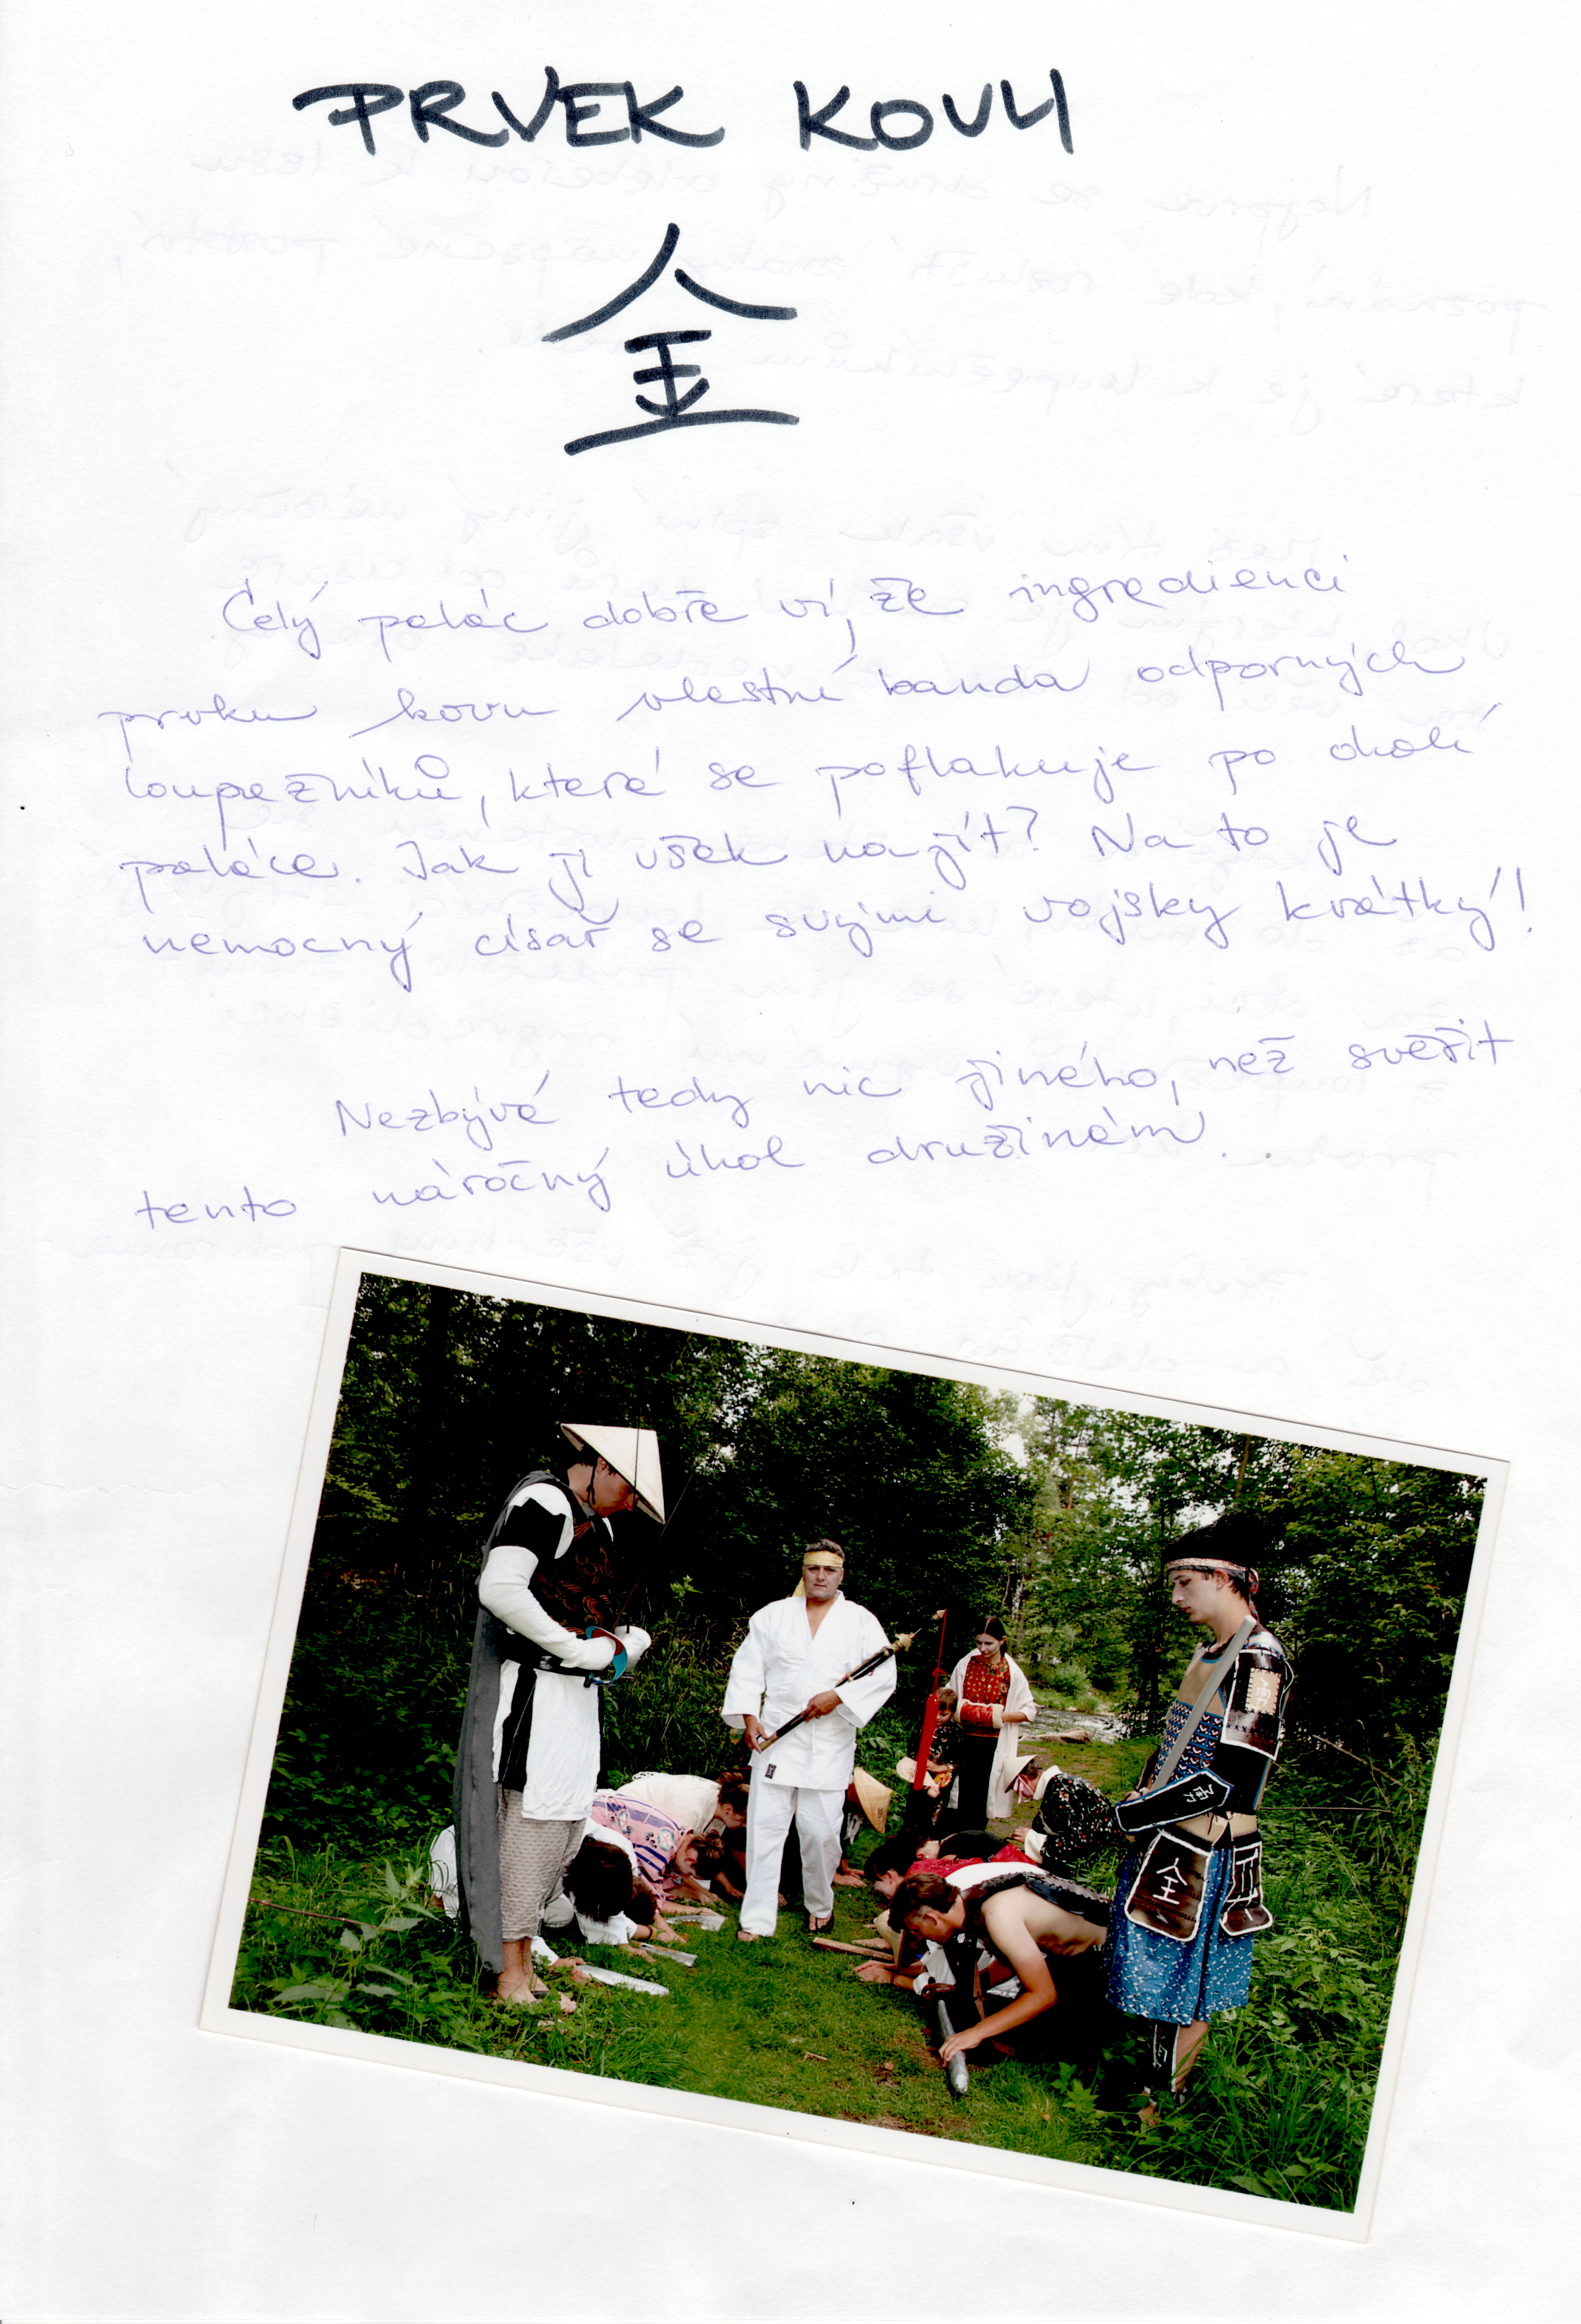 PRVEK KOVU
金
Celý palác dobře ví, že ingredienci
prvku kovu vlastní banda odporných
loupežníků, která se poflakuje po okolí
paláce. Jak ji však najít? Na to je
nemocný císař se svými vojsky krátký!
Nezbývá tedy nic jiného, než svěřit
tento náročný úkol družinám.
金